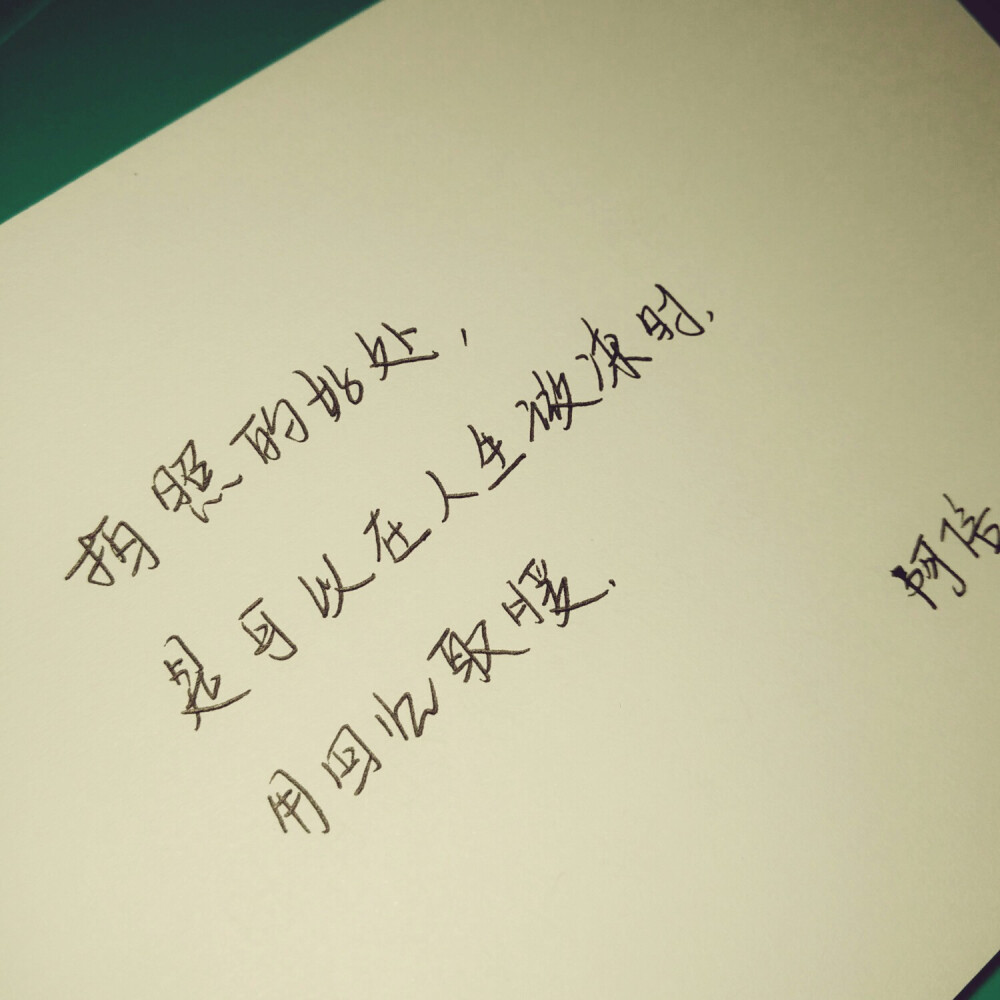 拍照的好处，
是可以在人生激凍时，
用回忆取暖.
阿信